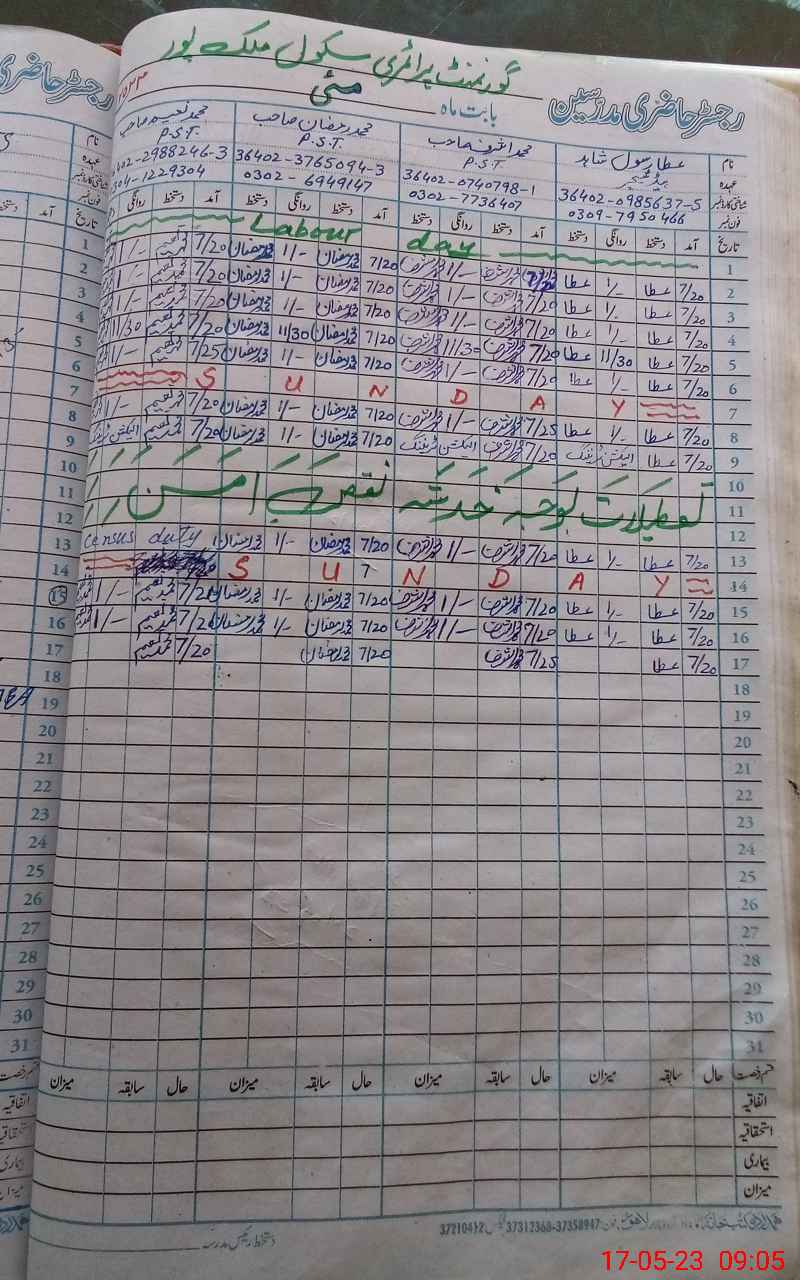 گورنمنٹ پرائمری سکول ملک پور
رجسٹر حاضری مدرسین بابت ماہ مئی
نام عطا رسول شاہد محمد اشرف صاحب محمد رمضان صاحب محمد نعیم صاحب
عہدہ ہیڈ ٹیچر P.S.T. P.S.T. P.S.T.
شناختی کارڈ نمبر 36402-0985637-5 36402-0740798-1 36402-3765094-3 36402-2988246-3
فون نمبر 0309-7950466 0302-7736407 0302-6949147 0304-1229304
تاریخ آمد دستخط روانگی دستخط آمد دستخط روانگی دستخط آمد دستخط روانگی دستخط آمد دستخط روانگی
1 Labour day
2 7/20 عطا 1/- عطا 7/20 محمد اشرف 1/- محمد اشرف 7/20 محمد رمضان 1/- محمد رمضان 7/20 محمد نعیم 1/-
3 7/20 عطا 1/- عطا 7/20 محمد اشرف 1/- محمد اشرف 7/20 محمد رمضان 1/- محمد رمضان 7/20 محمد نعیم 1/-
4 7/20 عطا 1/- عطا 7/20 محمد اشرف 1/- محمد اشرف 7/20 محمد رمضان 1/- محمد رمضان 7/20 محمد نعیم 1/-
5 7/20 عطا 11/30 عطا 7/20 محمد اشرف 11/30 محمد اشرف 7/20 محمد رمضان 11/30 محمد رمضان 7/20 محمد نعیم 11/30
6 7/20 عطا 1/- عطا 7/20 محمد اشرف 1/- محمد اشرف 7/20 محمد رمضان 1/- محمد رمضان 7/25 محمد نعیم 1/-
7 S U N D A Y
8 7/20 عطا 1/- عطا 7/25 محمد اشرف 1/- محمد اشرف 7/20 محمد رمضان 1/- محمد رمضان 7/20 محمد نعیم 1/-
9 7/20 عطا الیکشن ٹریننگ 7/20 محمد اشرف الیکشن ٹریننگ 7/20 محمد رمضان 1/- محمد رمضان 7/20 محمد نعیم الیکشن ٹریننگ
10
11 تعطیلات بوجہ خدشہ نقص امن
12
13 7/20 عطا 1/- عطا 7/20 محمد اشرف 1/- محمد اشرف 7/20 محمد رمضان 1/- محمد رمضان census duty
14 S U N D A Y
15 7/20 عطا 1/- عطا 7/20 محمد اشرف 1/- محمد اشرف 7/20 محمد رمضان 1/- محمد رمضان 7/20 محمد نعیم 1/-
16 7/20 عطا 1/- عطا 7/20 محمد اشرف 1/- محمد اشرف 7/20 محمد رمضان 1/- محمد رمضان 7/20 محمد نعیم 1/-
17 7/20 عطا 7/25 محمد اشرف 7/20 محمد رمضان 7/20 محمد نعیم
18
19
20
21
22
23
24
25
26
27
28
29
30
31
قسم رخصت حال سابقہ میزان حال سابقہ میزان حال سابقہ میزان حال سابقہ میزان
اتفاقیہ
استحقاقیہ
بیماری
میزان
37210412 37312368-37358947
دستخط رئیس مدرسہ
17-05-23 09:05